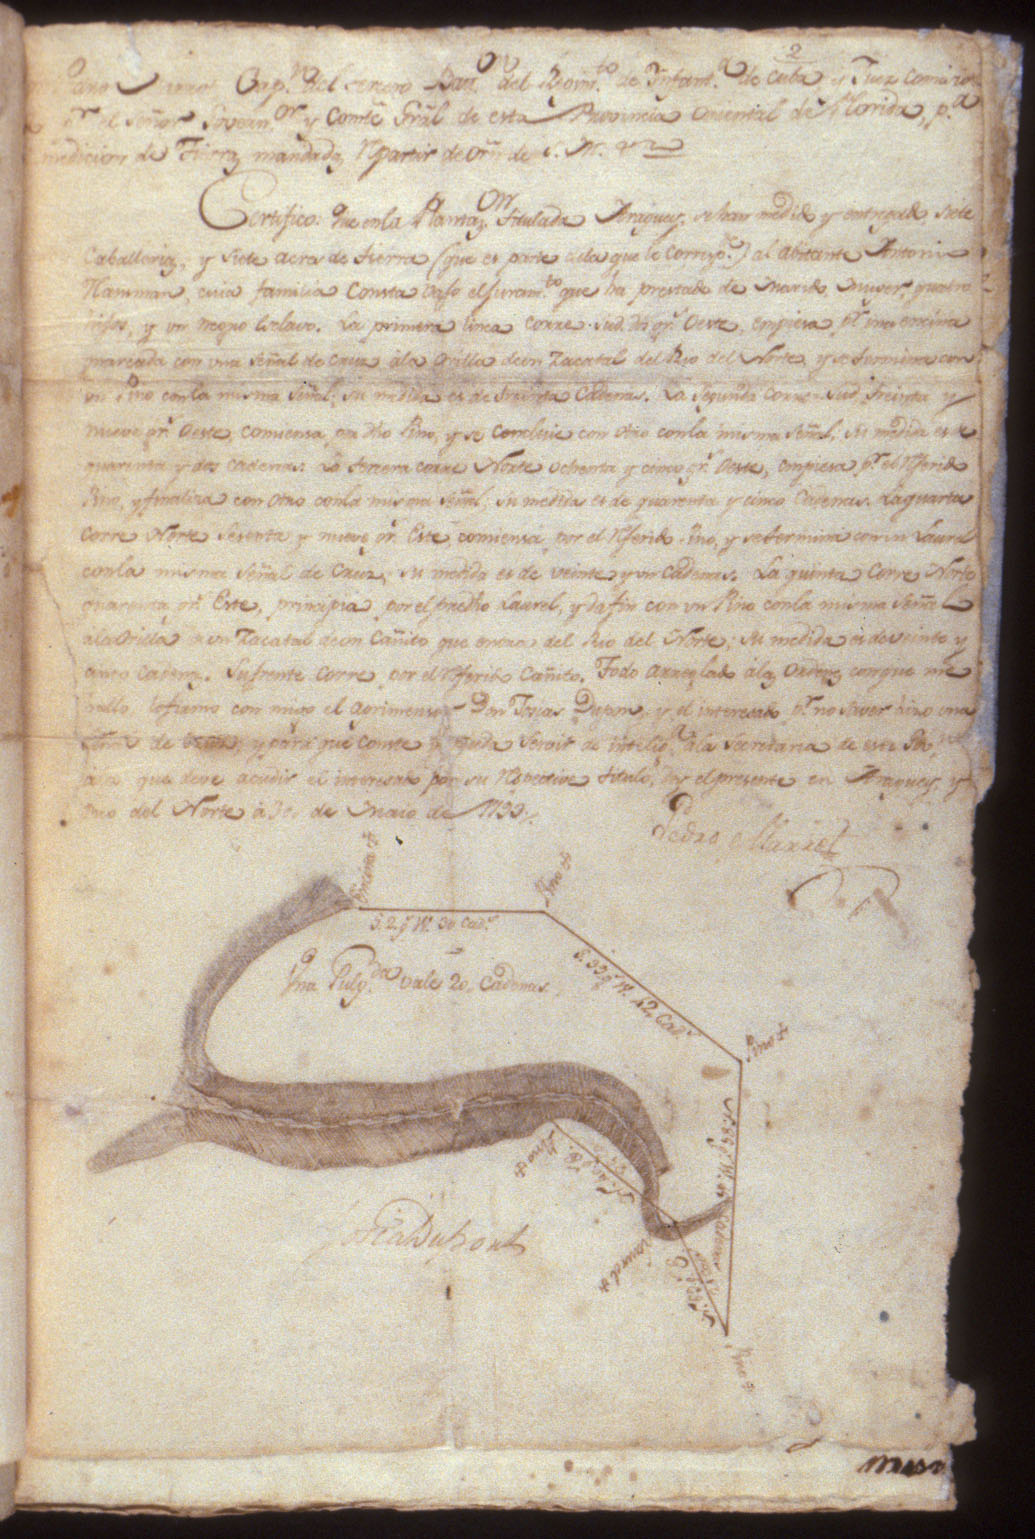 2
Cap.n del tercero Bat.on del Regim.to de Ynfant.a de Cuba, y Juez Comi
p.r el Señor Govern.or y Com.te Grâl de esta Provincia Oriental de Florida, p.a
medicion de Tierras mandadas Repartir de orn de S. M.
Certifico: Que en la Plantaz.on titulada Araguey, se han medido y entregado siete
Caballerias, y siete acras de tierra (que es parte de la que le corresp.e) al abitante Antonio
Hansman, cuia familia Consta bajo el juram.to que ha prestado de Marido, Muger, quatro
hijos, y un negro Esclavo. La primera linea corre Sud dos gr.s Oeste, empiesa p.r una encina
marcada con una señal de Cruz a la Orilla de un Zacatal del Rio del Norte, y se termina con
un Pino con la misma señal; su medida es de treinta Cadenas. La segunda Corre Sud, treinta y
nueve gr.s Oeste, comiensa por dho Pino, y se concluie con otro con la misma señal; su medida es de
quarenta y dos cadenas. La tercera corre Norte ochenta y cinco gr.s Oeste, empiesa p.r el Referido
Pino, y finaliza con otro con la misma señal; su medida es de quarenta y cinco Cadenas. La quarta
Corre Norte sesenta y nueve gr.s Este, comiensa por el Referido Pino, y se termina con un Laurel
con la misma señal de Cruz, su medida es de veinte y un Cadenas. La quinta Corre Norte
quarenta gr.s Este, principia por el predho Laurel, y da fin con un Pino con la misma señal
a la Orilla de un Zacatal de un Cañito que entra del Rio del Norte; su medida es de veinte y
cinco Cadenas. Su frente Corre por el Referido Cañito. Todo arreglado a las Ordenes con que me
hallo. Lo firmo con migo el Agrimensor Don Josias Dupon, y el interesado p.r no saver hizo una
señal de Cruz; y para que Conste y pueda servir de intelig.a a la Secretaria de este
a la que deve acudir el interesado por su Respectivo titulo, doy el presente en Araguey, y
Rio del Norte à de Maio de 1793.
Pedro Marrot
Encina +
Pino +
S. 2. g W. 30 Cad.s
Una Pulg.da vale 20 Cadenas.
S. 39 g W. 42 Cad.s
Pino +
Pino +
Josia Dupont
Laurel +
Pino +